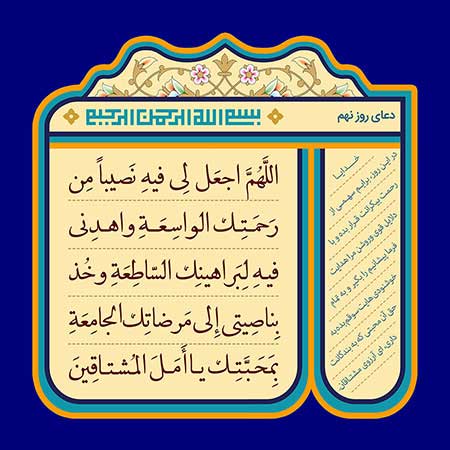 دعای روز نهم
بسم الله الرحمن الرحیم
اللَّهُمَّ اجعَل لِی فیهِ نَصیباً مِن
رَحمَتِـكَ الواسِعَـةِ واهـدِنی
فیهِ لِبَراهینِكَ السّاطِعَةِ وخُذ
بِناصِیَتی إلی مَرضاتِكَ الجامِعَةِ
بِمَحَبَّتِـكَ یـا أمَـلَ المُشتـاقینَ
خدایـا
در این روز، برایم سهمـی از
رحمت بیکرانت قـرار بده و با
دلایل قوی و روشن مرا هدایت
فرما پیشانیم را بگیر و به تمام
خوشنودی‌هایت سوقم بده به
حق آن محبتی که به بندگانت
داری، ای آرزوی مشتاقان.